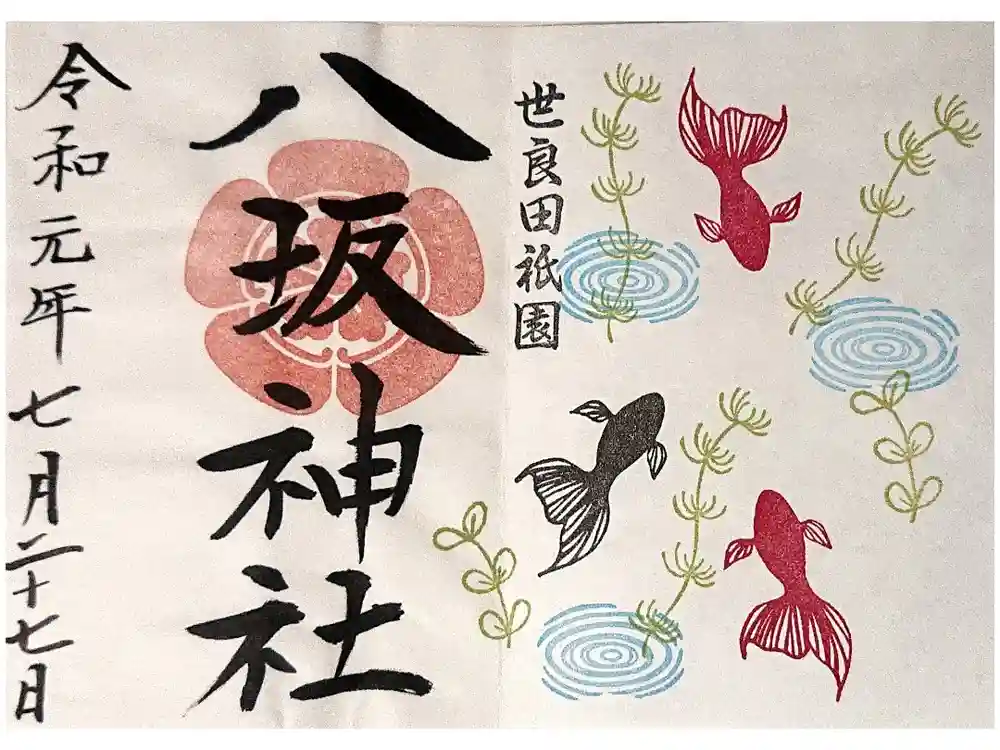 世良田祇園
八坂神社
令和元年七月二十七日